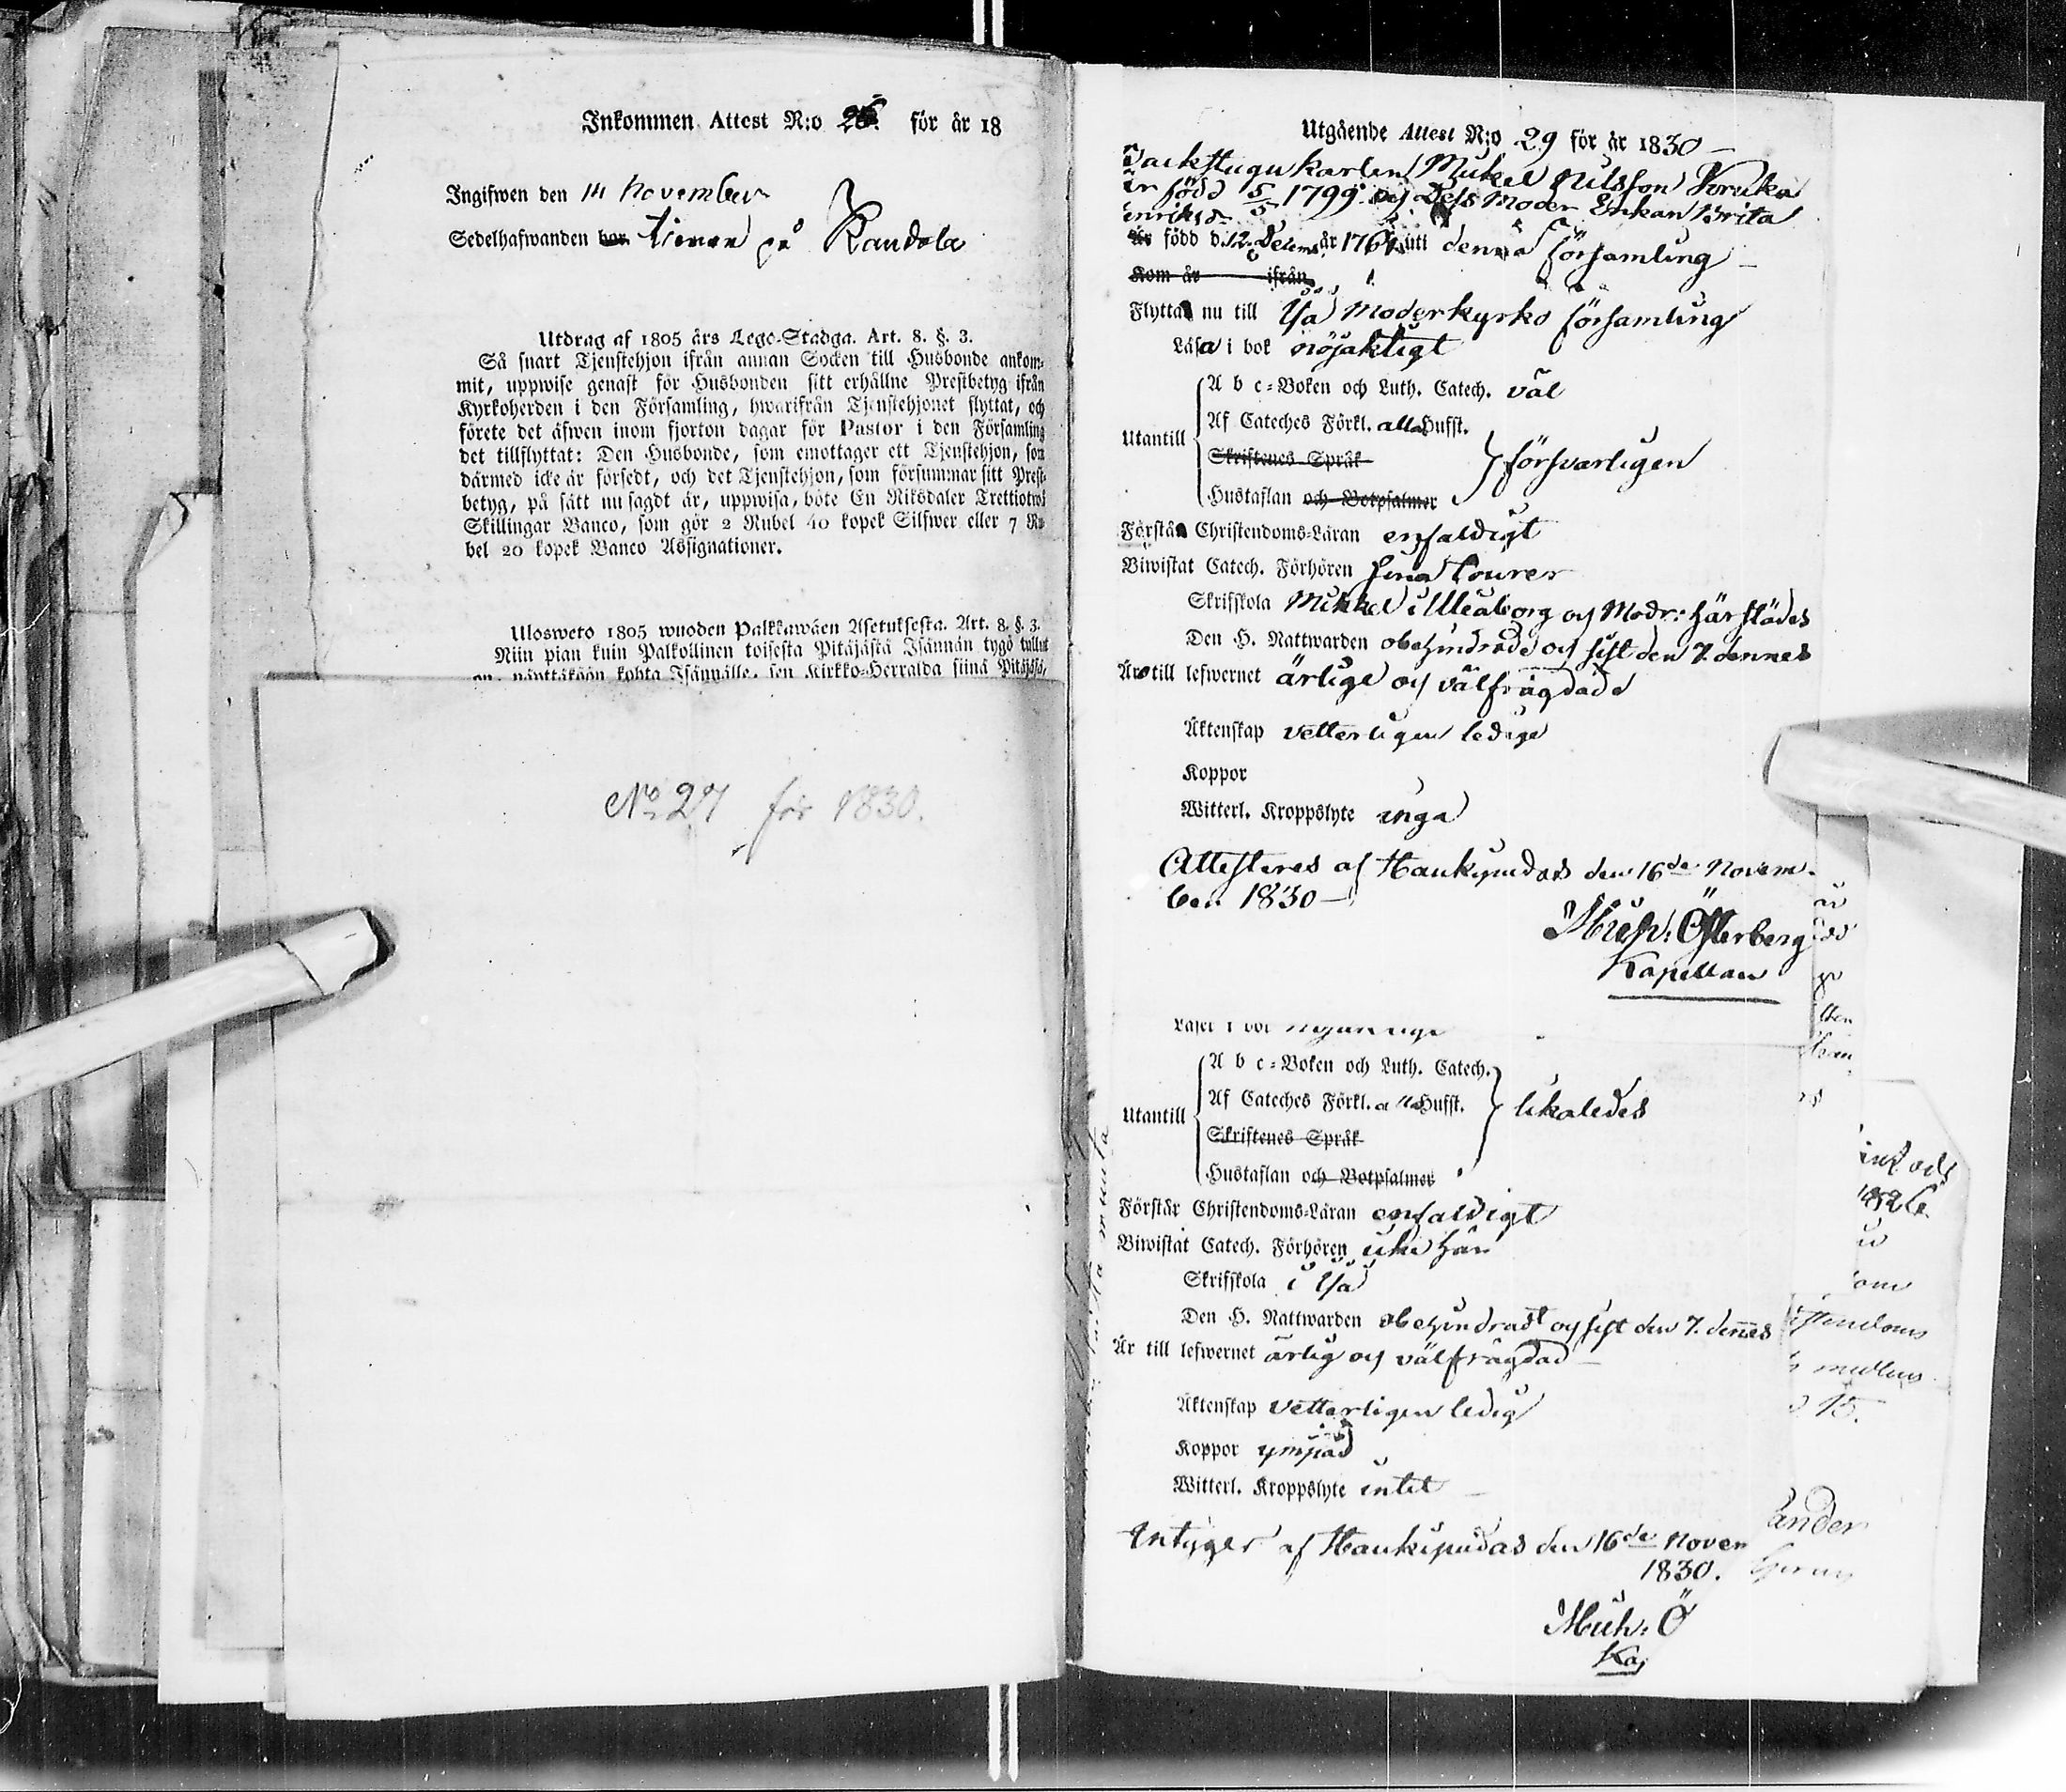 Inkommen Attest N:o 26. för år 18
Ingifwen den 14 November
Sedelhafwanden har tienar på Raudola
Utdrag af 1805 års Lego-Stadga. Art. 8. §. 3.
Så snart Tjenstehjon ifrån annan Socken till Husbonde ankom-
mit, uppwise genast för Husbonden sitt erhållne Prestbetyg ifrån
Kyrkoherden i den Församling, hwarifrån Tjenstehjonet flyttat, och
förete det äfwen inom fjorton dagar för Pastor i den Församling
det tillflyttat: Den Husbonde, som emottager ett Tjenstehjon, som
därmed icke är försedt, och det Tjenstehjon, som försummar sitt Prest-
betyg, på sätt nu sagdt är, uppwisa, böte En Riksdaler Trettiotwå
Skillingar Banco, som gör 2 Rubel 40 kopek Silfwer eller 7 Ru-
bel 20 kopek Banco Assignationer.
Ulosweto 1805 wuoden Palkkawäen Asetuksesta. Art. 8. §. 3.
Niin pian kuin Palkollinen toisesta Pitäjästä Isännän tygö tullut
on, näyttäköön kohta Isännälle, sen Kirkko-Herralda siinä Pitäjäsä,
No 27 för 1830.
Utgående Attest N:o 29 för år 1830
Backstugu karlen Mickel Nilsson Kruka
är född 5/5 1799 och Dess Moder Enkan Brita
Henriksdr
Är född d. 12 Decemb år 1764 uti denna församling
Kom år ifrån
Flytta nu till Ijo Moderkyrko församling
Läsa i bok nöjaktigt
Utantill
A b c-Boken och Luth. Catech. väl
Af Cateches Förkl. alla Hufst.
Skriftenes Språk
försvarligen
Hustaflan och Botpsalmer
Förstån Christendoms-Läran enfaldigt
Biwistat Catech. Förhören sina tourer
Skriftskola Mickel i Uleåborg och Modr: härstädes
Den H. Nattwarden obehindrade och sist den 7. dennes
Äro till lefwernet ärlige och välfrägdade
Äktenskap vetterligen ledige
Koppor
Witterl. Kroppslyte inga
Attesteras af Haukipudas den 16de Novem-
ber 1830
Mich: Österberg
Kapellan
Läser i bok
Utantill
A b c-Boken och Luth. Catech.
Af Cateches Förkl. alla Hufst.
likaledes
Skriftenes Språk
Hustaflan och Botpsalmer
Förstår Christendoms-Läran enfaldigt
Biwistat Catech. Förhören icke här
Skriftskola i Ijo
Den H. Nattwarden obehindradt och sist den 7. dennes
Är till lefwernet ärlig och välfrägdad
Äktenskap vetterligen ledig
Koppor ympad
Witterl. Kroppslyte intet
Intygar af Haukipudas den 16de Novem
1830.
Mich: Ö
Kap